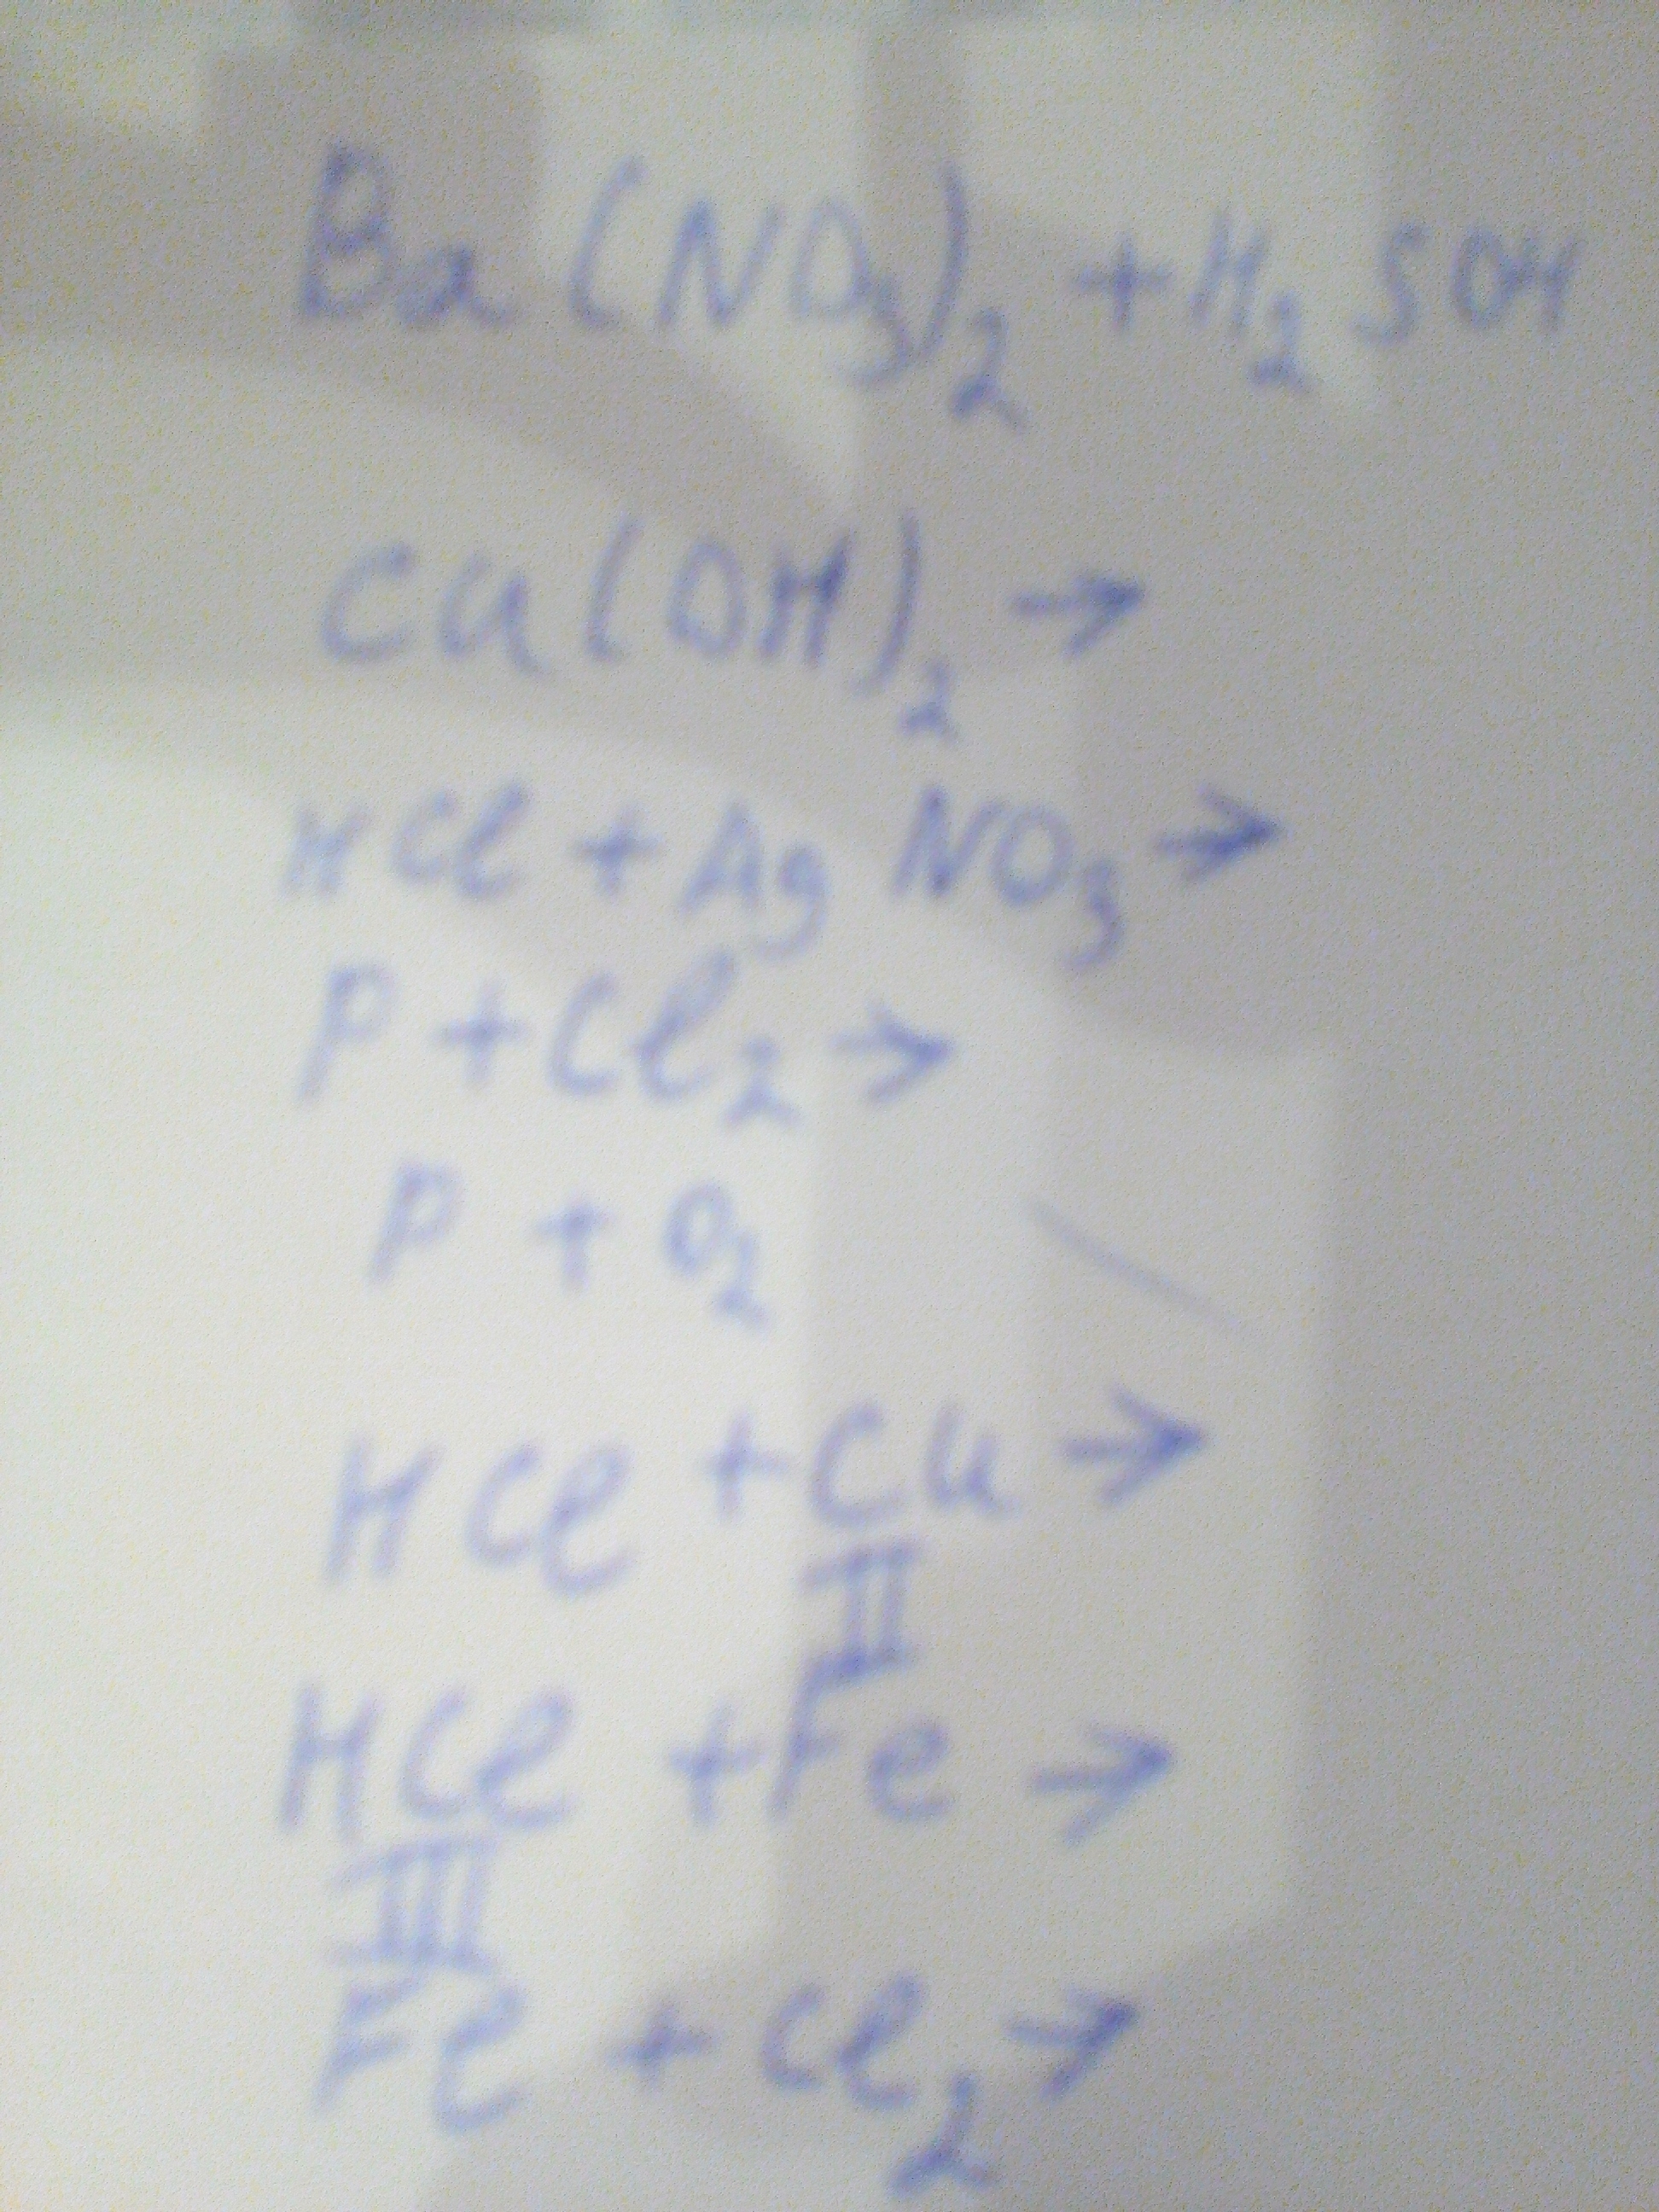 Ba(NO3)2 + H2SO4
Cu(OH)2 →
HCl + AgNO3 →
P + Cl2 →
P + O2
HCl + Cu →
II
HCl + Fe →
III
Fe + Cl2 →